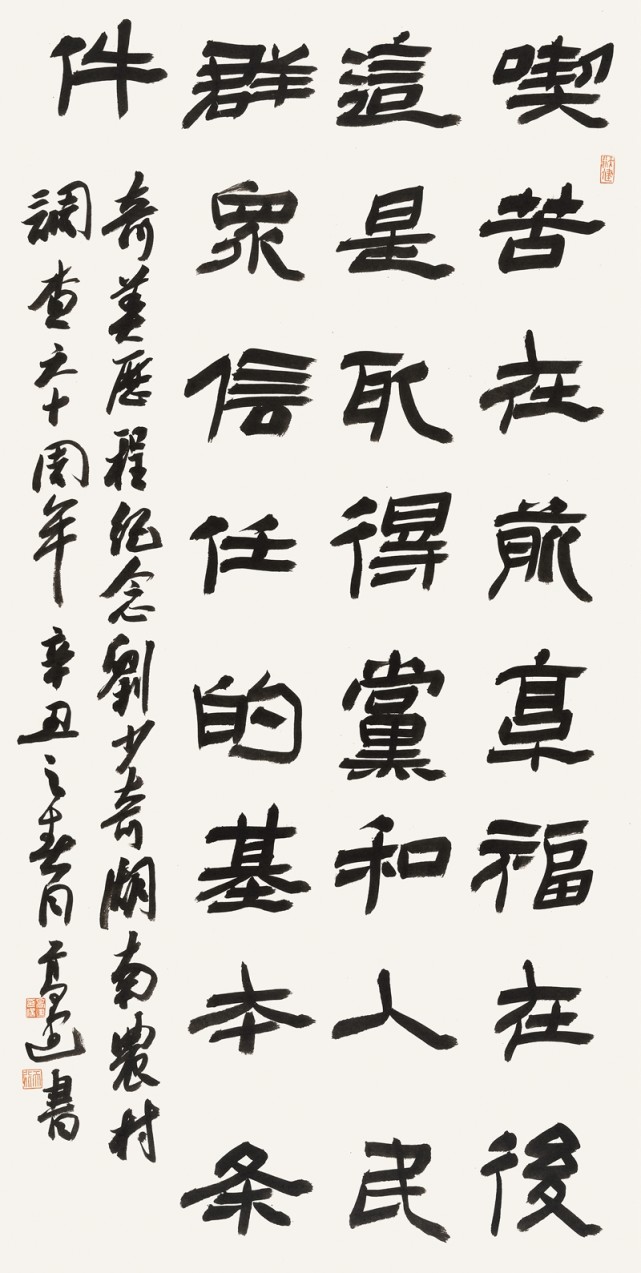 喫苦在前享福在後
這是取得黨和人民
群眾信任的基本条
件
奇美歷程纪念劉少奇湖南農村
調查六十周年 辛丑之春月
書